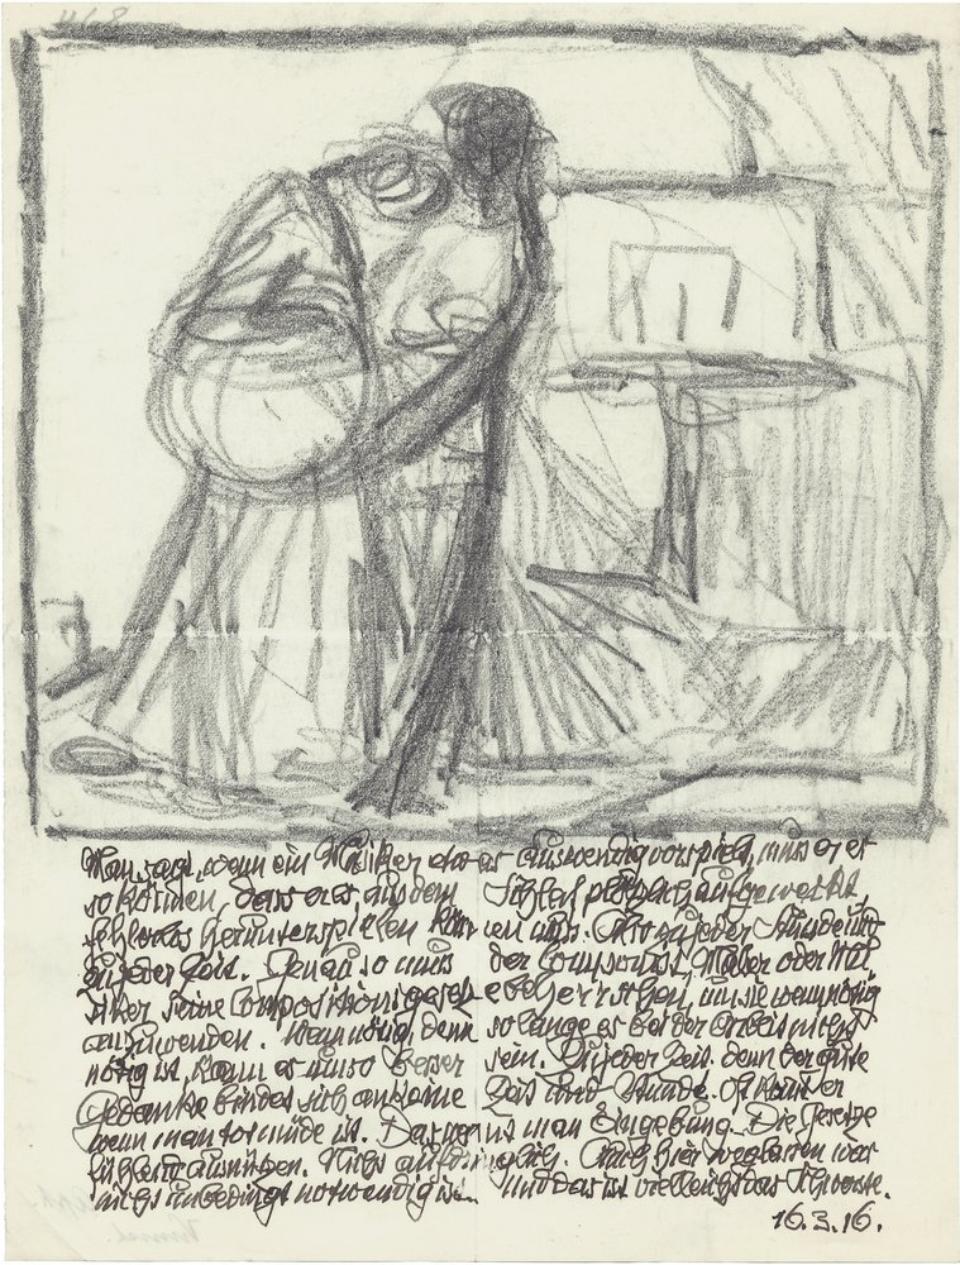 Man sagt, wenn ein Musiker etwas auswendig vorspielt, muss er es
so können, dass er es, aus dem Schlaf plötzlich aufgeweckt,
fehlerlos herunterspielen können muss. Also zu jeder Stunde und
zu jeder Zeit. Genau so muss der Componist, Maler oder Mu
siker seine Compositionsgesetze beherrschen, um sie wenn nötig
anzuwenden. Wenn nötig, denn so lange es bei der Arbeit nicht
nötig ist, kann es umso besser sein. Zu jeder Zeit. denn der gute
Gedanke bindet sich an keine Zeit und Stunde. Oft kommt er
wenn man tot müde ist. Das nennt man Eingebung. Die Gesetze
fühlend ausnützen. Nichts aufdringlich. Auch hier weglassen was
nicht unbedingt notwendig ist. Und das ist vielleicht das Schwerste.
16.3.16.